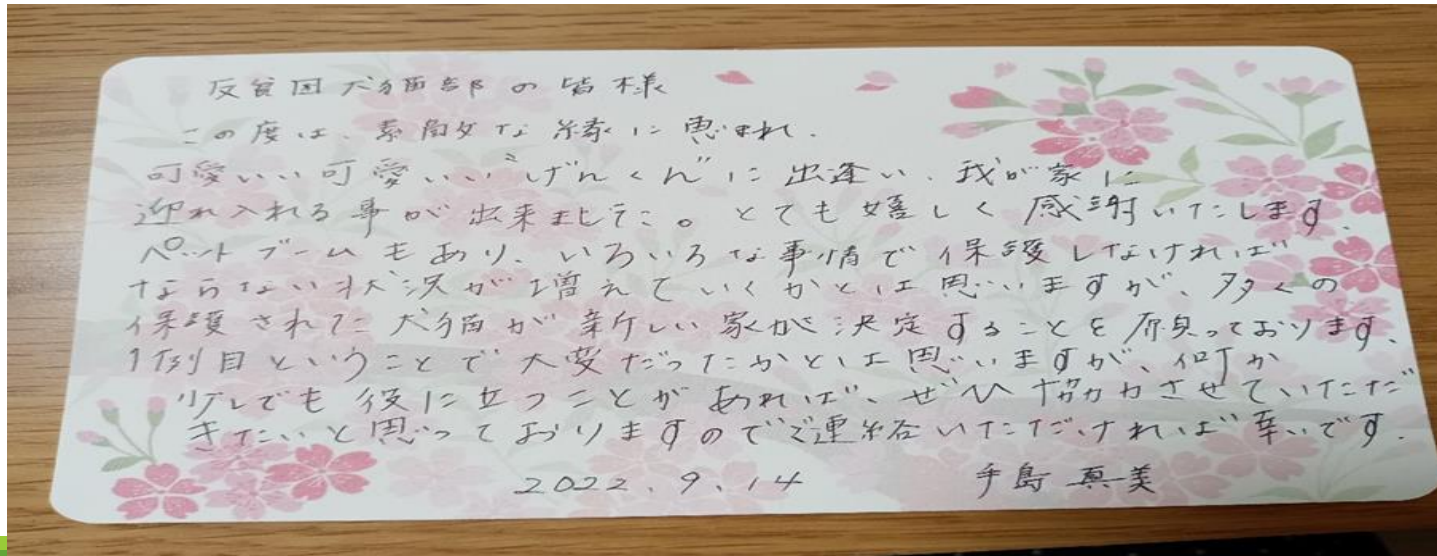 反貧困犬猫部の皆様
この度は、素敵な縁に恵まれ、
可愛いい可愛いい“げんくん”に出逢い、我が家に
迎れ入れる事が出来ました。とても嬉しく感謝いたします。
ペットブームもあり、いろいろな事情で保護しなければ
ならない状況が増えていくかとは思いますが、多くの
保護された犬猫が新しい家が決定することを願っております。
1例目ということで大変だったかとは思いますが、何か
少しでも役に立つことがあれば、ぜひ協力させていただ
きたいと思っておりますのでご連絡いただければ幸いです。
2022.9.14 手島真美